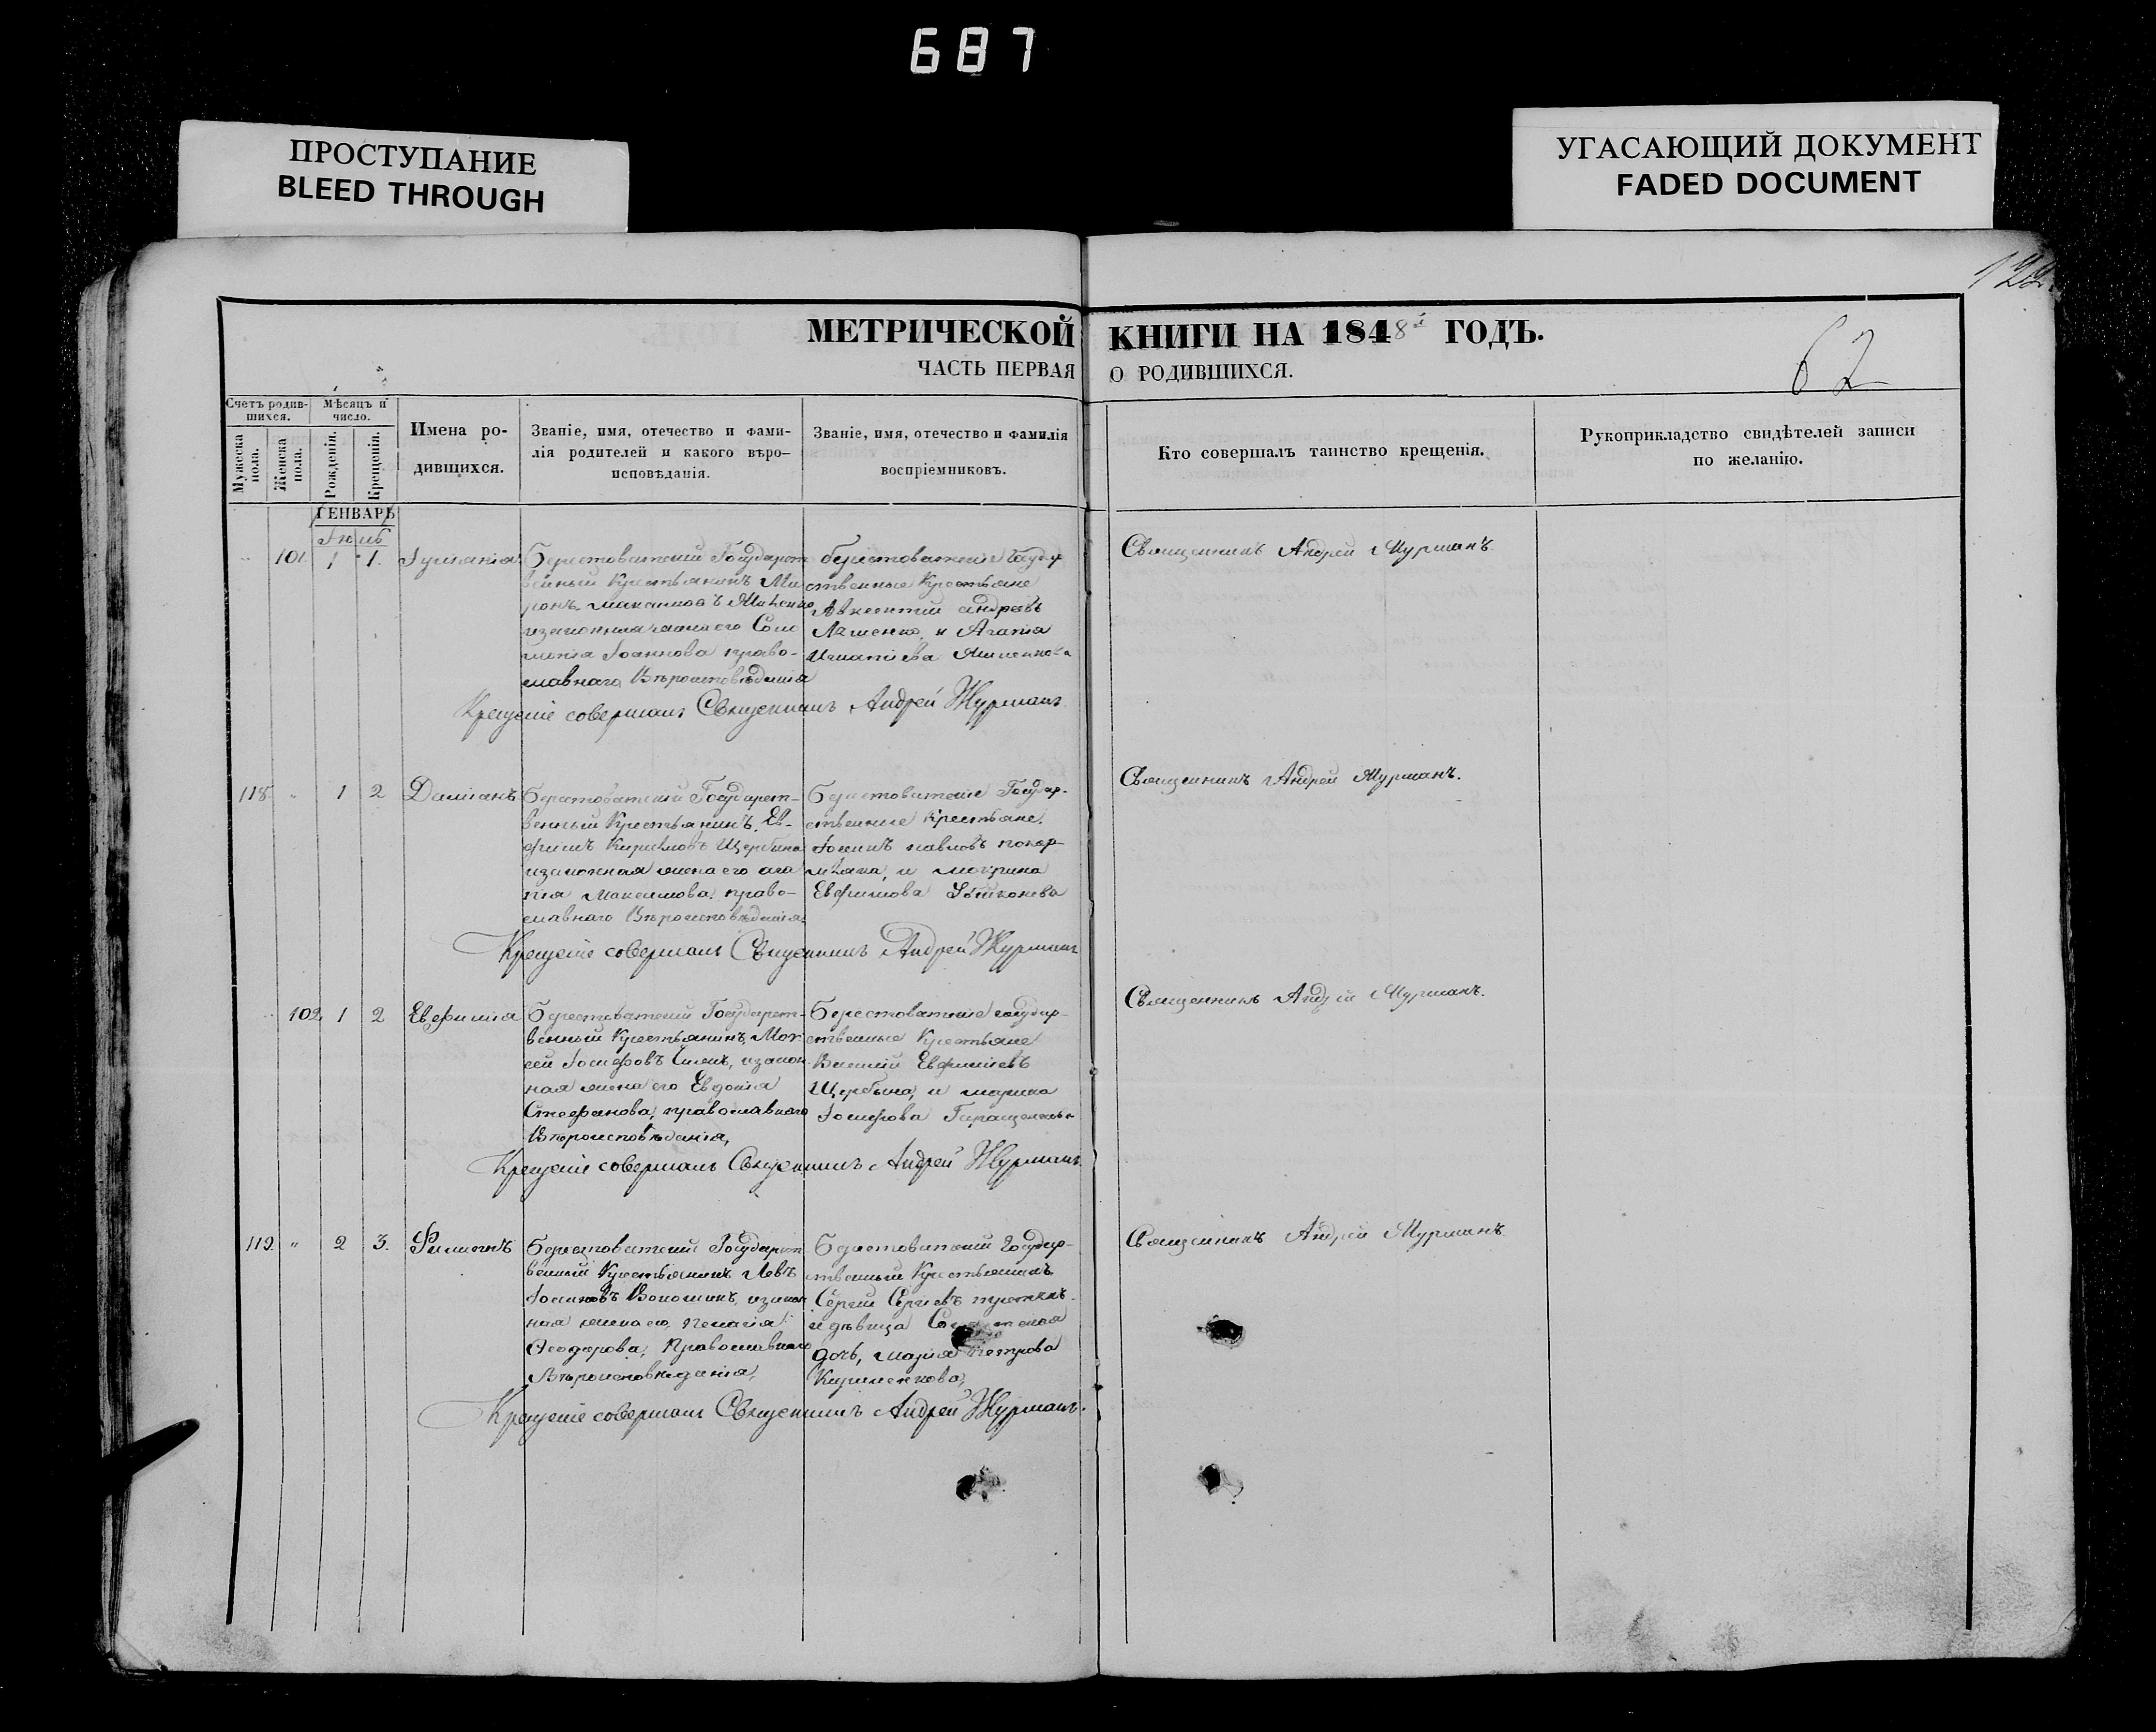 687
ПРОСТУПАНИЕ
BLEED THROUGH
УГАСАЮЩИЙ ДОКУМЕНТ
FADED DOCUMENT
МЕТРИЧЕСКОЙ КНИГИ НА 1848й ГОДЪ.
ЧАСТЬ ПЕРВАЯ О РОДИВШИХСЯ.
62
Счетъ родив-
шихся.
Мужеска
пола.
Женска
пола.
Мѣсяцъ и
число.
Рожденія.
Крещенія.
Имена ро-
дившихся.
Званіе, имя, отечество и фами-
лія родителей и какого вѣро-
исповѣданія.
Званіе, имя, отечество и фамилія
воспріемниковъ.
Кто совершалъ таинство крещенія.
Рукоприкладство свидѣтелей записи
по желанію.
ГЕНВАРЬ
101. 1 1. Іуліанія
Берестоватскій Государст-
венный Крестьянинъ Ми-
ронъ Максимовъ
законная жена его Соло-
монія Іоаннова право-
славнаго Вѣроисповѣданія
Берестоватскіе Государ-
ственные Крестьяне
Авксентій Андреевъ
Ляшенко, и Агапія
Игнатіева
Священникъ Андрей Журманъ.
Крещеніе совершалъ Священникъ Андрей Журманъ.
118. " 1 2 Даміанъ
Берестоватскій Государст-
венный Крестьянинъ Ев-
фимъ Кириловъ Щербина
и законная жена его Ага-
пія Максимова право-
славнаго Вѣроисповѣданія.
Берестоватскіе Государ-
ственные Крестьяне
Павловъ
и Мотрина
Евфимова
Священникъ Андрей Журманъ.
Крещеніе совершалъ Священникъ Андрей Журманъ
102. 1 2 Евфимія
Берестоватскій Государст-
венный Крестьянинъ Мои-
сей Іосифовъ закон-
ная жена его Евдокія
Стефанова, православнаго
Вѣроисповѣданія,
Берестоватскіе Государ-
ственные Крестьяне
Василій Евфиміевъ
Щербина, и Марина
Іосифова
Священникъ Андрей Журманъ.
Крещеніе совершалъ Священникъ Андрей Журманъ.
119. " 2 3. Филиппъ
Берестоватскій Государст-
венный Крестьянинъ Левъ
Волошинъ, и закон-
ная жена его Пелагія
Ѳеодорова, Православнаго
Вѣроисповѣданія,
Берестоватскій Государ-
ственный Крестьянинъ
Сергій Сергіевъ
и дѣвица
дочь, Марія Петрова
Священникъ Андрей Журманъ
Крещеніе совершалъ Священникъ Андрей Журманъ.